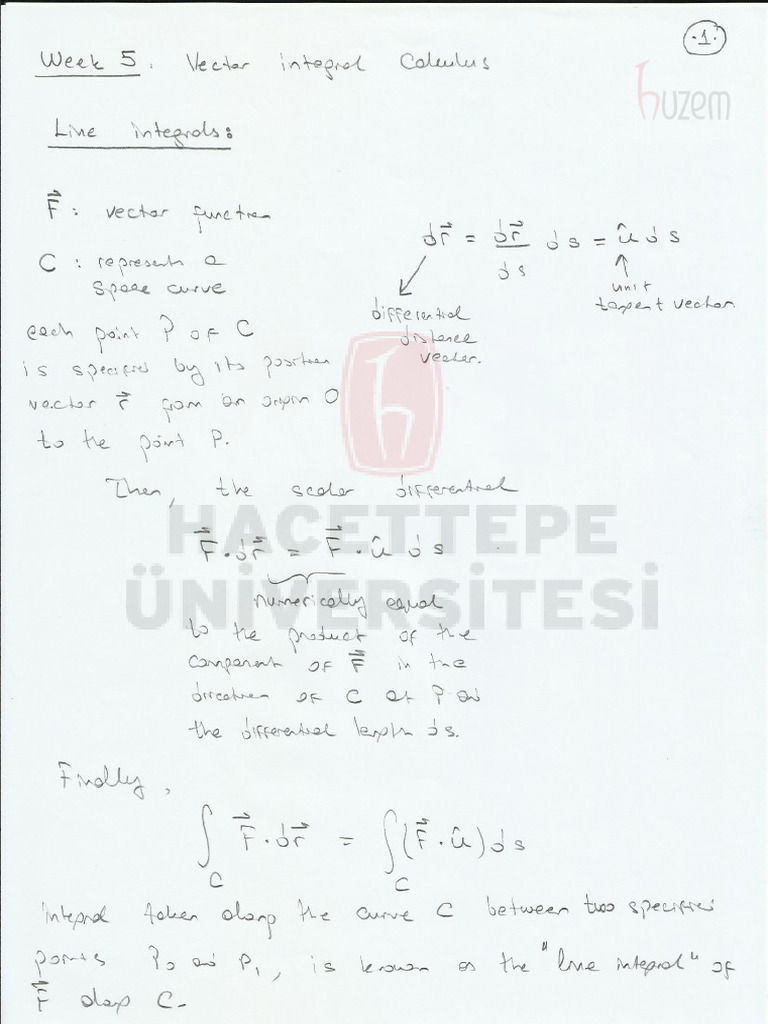 .1.
Week 5. Vector integral Calculus
huzem
Line integrals:
F⃗ : vector function
C : represents a
space curve
each point P of C
is specified by its position
vector r⃗ from an origin O
to the point P.
dr⃗ = dr⃗/ds ds = û ds
differential
distance
vector.
unit
tangent vector.
Then, the scalar differential
HACETTEPE
ÜNİVERSİTESİ
F⃗ · dr⃗ = F⃗ · û ds
numerically equal
to the product of the
component of F⃗ in the
direction of C at P and
the differential length ds.
Finally,
∫_C F⃗ · dr⃗ = ∫_C (F⃗ · û) ds
integral taken along the curve C between two specified
points P₀ and P₁, is known as the "line integral" of
F⃗ along C.